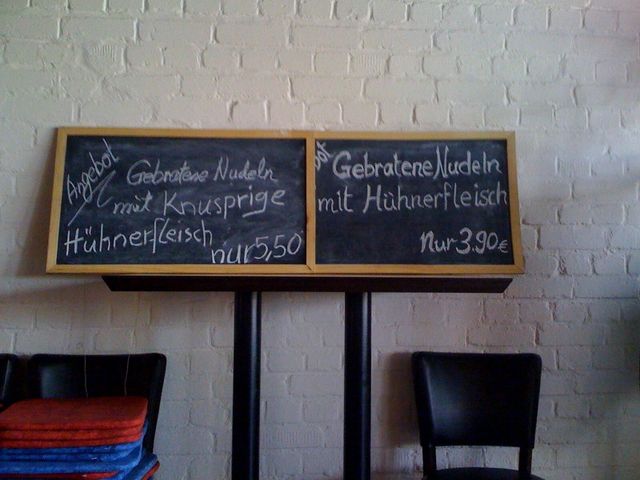 Angebot
Gebratene Nudeln
mit Knusprige
Hühnerfleisch
nur 5,50
Gebratene Nudeln
mit Hühnerfleisch
Nur 3.90€